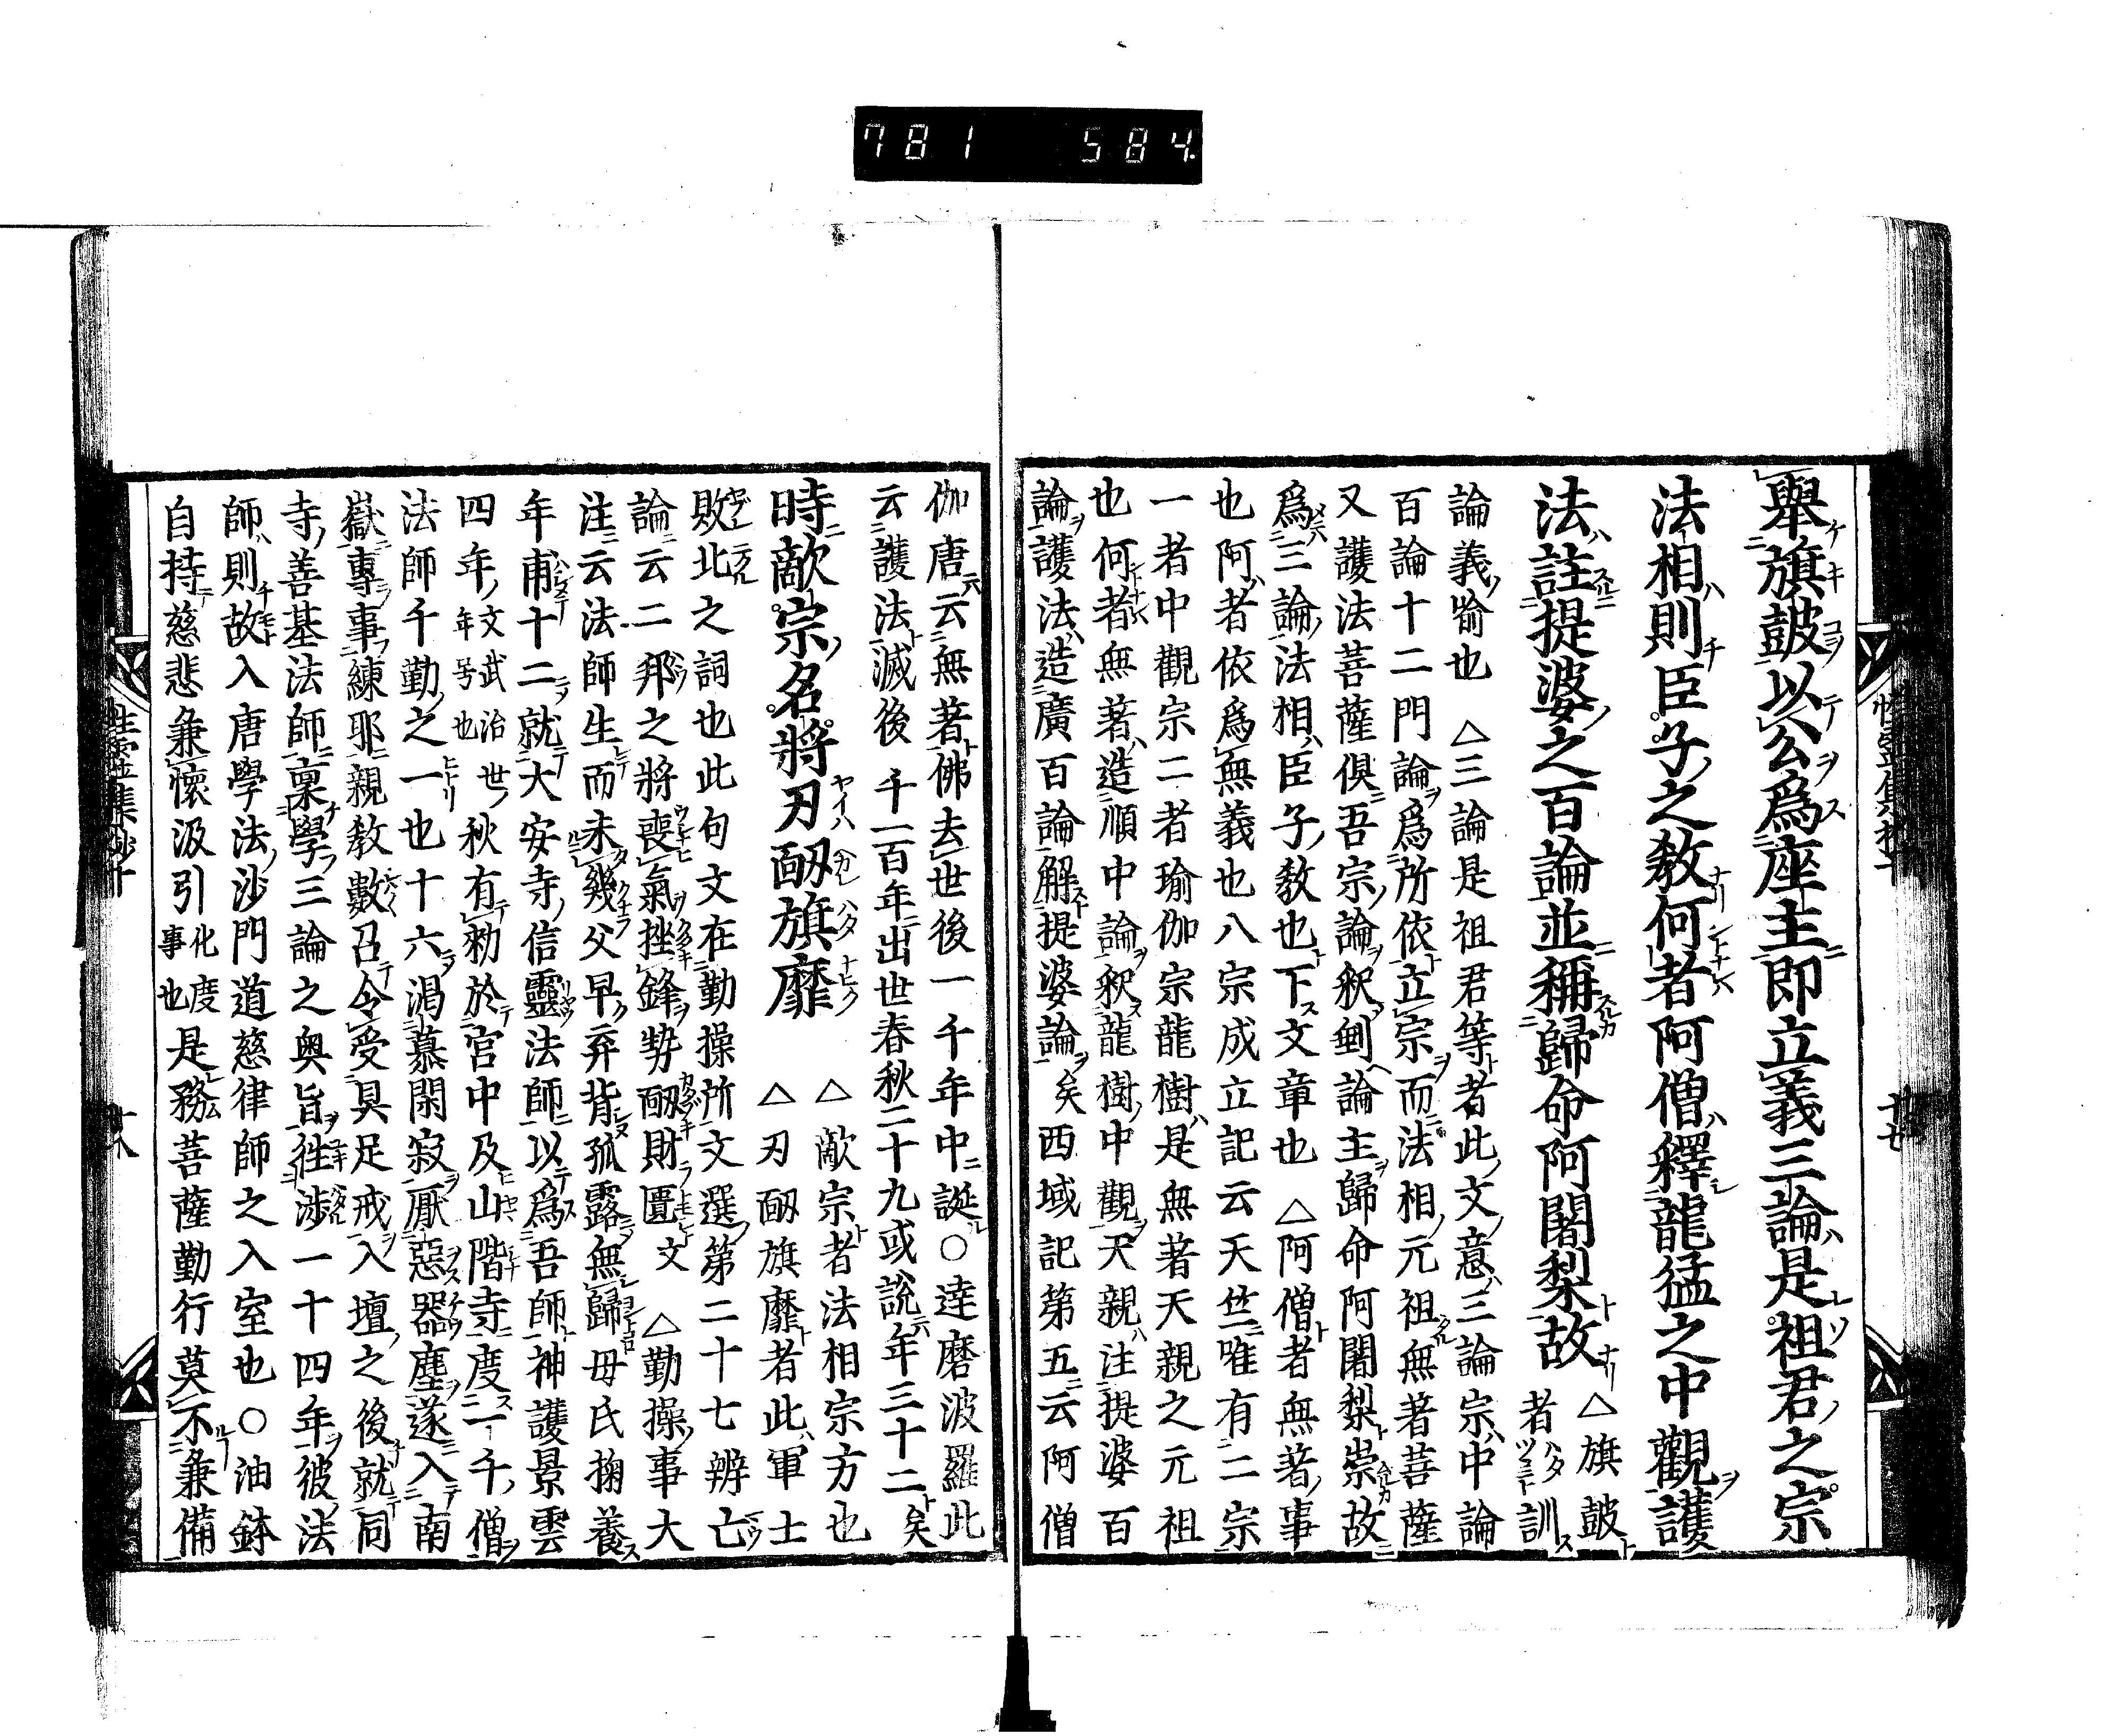 781 584
舉旗皷以公爲座主即立義三論是祖君之宗
法相則臣子之敎何者阿僧釋龍猛之中觀護
法註提婆之百論並稱歸命阿闍梨故 △旗皷
者ハタツヽミト訓ス
論義喻也 △三論是祖君等者此文意三論宗中論
百論十二門論爲所依立宗而法相元祖無著菩薩
又護法菩薩倶吾宗論釈剰論主歸命阿闍梨崇故
爲三論法相臣子敎也下文章也 △阿僧者無著事
也阿者依爲無義也八宗成立記云天竺唯有二宗
一者中觀宗二者瑜伽宗龍樹是無著天親之元祖
也何者無著造順中論釈龍樹中觀天親注提婆百
論護法造廣百論解提婆論矣西域記第五云阿僧
伽唐云無著佛去世後一千年中誕○達磨波羅此
云護法滅後千一百年出世春秋二十九或說年三十二矣
時敵宗名將刃衂旗靡 △敵宗者法相宗方也
△刃衂旗靡者此軍士
敗北之詞也此句文在勤操所文選第二十七辨亡
論云二邦之將喪氣挫鋒勢衂財匱文 △勤操事大
注云法師生而未幾父早弃背孤露無歸母氏掬養
年甫十二就大安寺信靈法師以爲吾師神護景雲
四年文武治世年号也秋有勅於宮中及山階寺度一千僧
法師千勤之一也十六渴慕閑寂厭惡器塵遂入南
嶽專事練耶親敎數召令受具足戒入壇之後就同
寺善基法師稟學三論之奥旨往涉一十四年彼法
師則故入唐學法沙門道慈律師之入室也○油鉢
自持慈悲兼懷汲引化度事也是務菩薩勤行莫不兼備
性靈集抄十
十八
十七